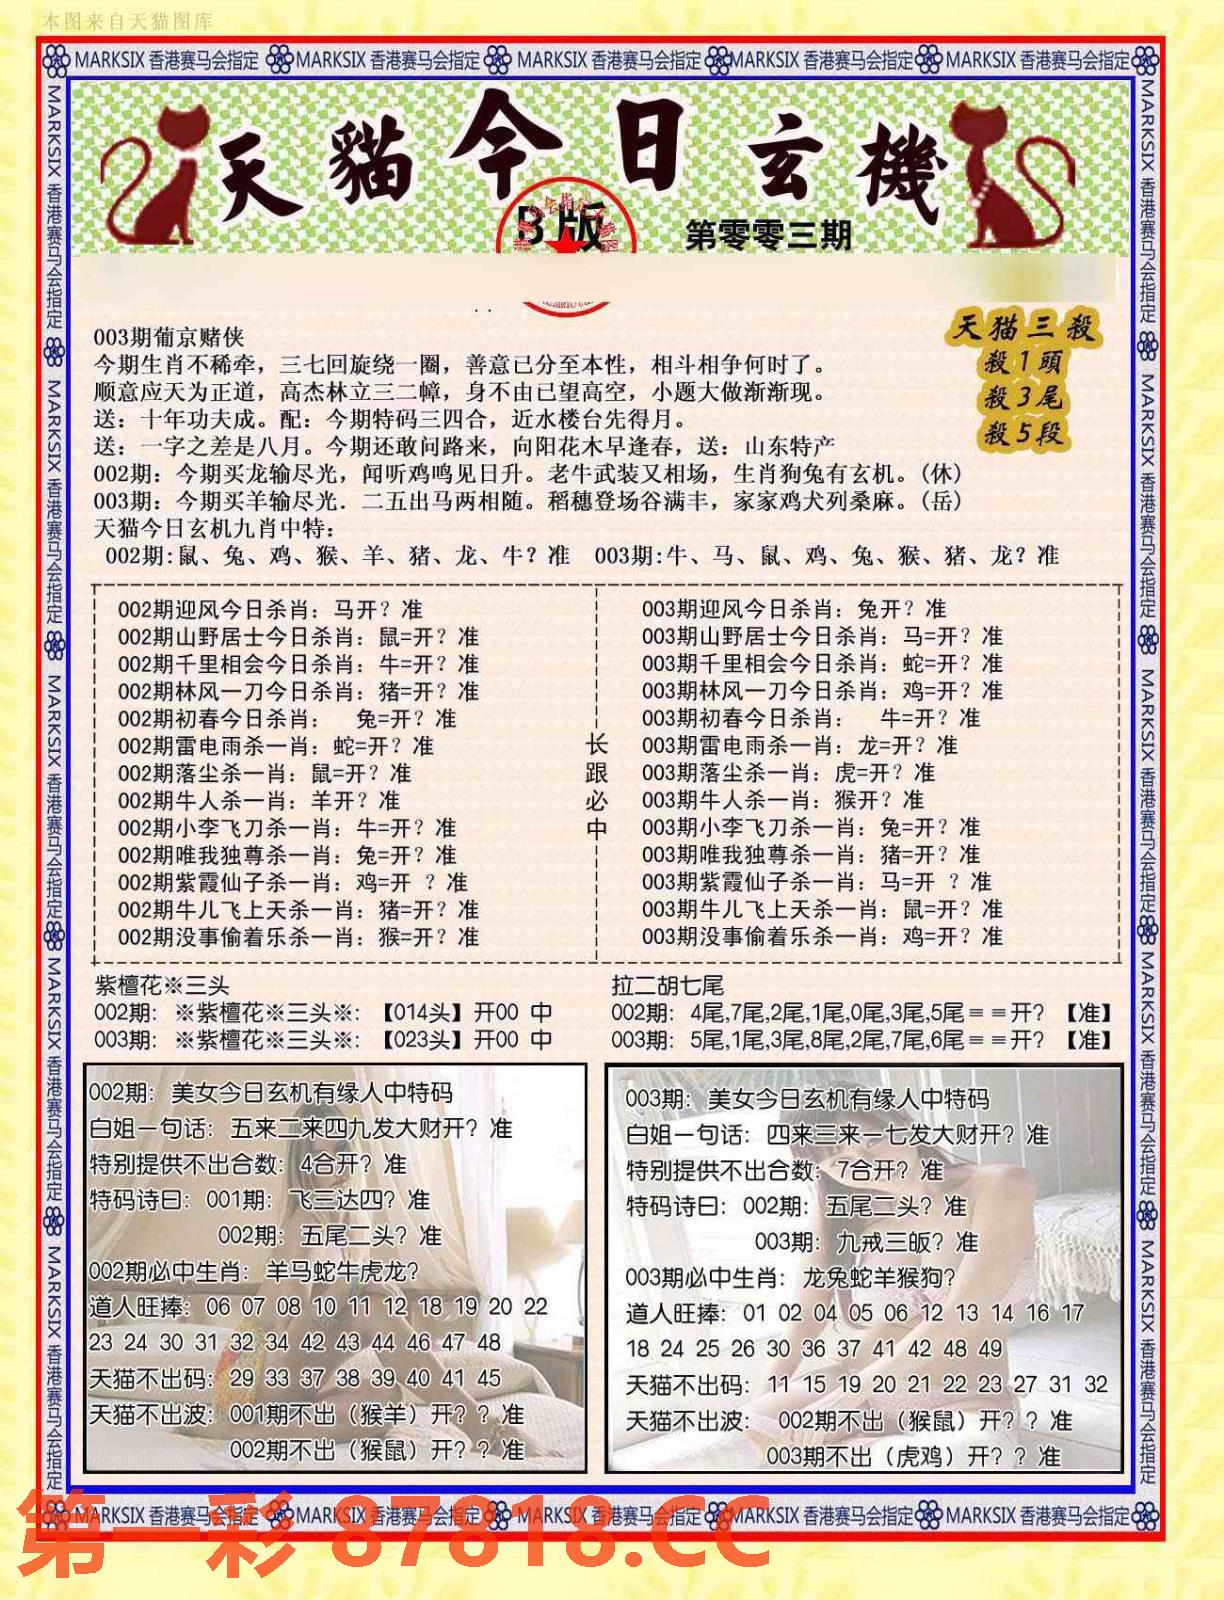 本图来自天猫图库
MARKSIX 香港赛马会指定 MARKSIX 香港赛马会指定 MARKSIX 香港赛马会指定 MARKSIX 香港赛马会指定 MARKSIX 香港赛马会指定
MARKSIX 香港赛马会指定 MARKSIX 香港赛马会指定 MARKSIX 香港赛马会指定 MARKSIX 香港赛马会指定 MARKSIX 香港赛马会指定
天貓今日玄機
B版
第零零三期
天猫三殺
殺1頭
殺3尾
殺5段
003期葡京赌侠
今期生肖不稀牵，三七回旋绕一圈，善意已分至本性，相斗相争何时了。
顺意应天为正道，高杰林立三二幛，身不由已望高空，小题大做渐渐现。
送：十年功夫成。配：今期特码三四合，近水楼台先得月。
送：一字之差是八月。今期还敢问路来，向阳花木早逢春，送：山东特产
002期：今期买龙输尽光，闻听鸡鸣见日升。老牛武装又相场，生肖狗兔有玄机。(休)
003期：今期买羊输尽光．二五出马两相随。稻穗登场谷满丰，家家鸡犬列桑麻。(岳)
天猫今日玄机九肖中特:
002期:鼠、兔、鸡、猴、羊、猪、龙、牛？准 003期:牛、马、鼠、鸡、兔、猴、猪、龙？准
002期迎风今日杀肖：马开？准
002期山野居士今日杀肖：鼠=开？准
002期千里相会今日杀肖：牛=开？准
002期林风一刀今日杀肖：猪=开？准
002期初春今日杀肖： 兔=开？准
002期雷电雨杀一肖：蛇=开？准
002期落尘杀一肖：鼠=开？准
002期牛人杀一肖：羊开？准
002期小李飞刀杀一肖：牛=开？准
002期唯我独尊杀一肖：兔=开？准
002期紫霞仙子杀一肖：鸡=开 ？准
002期牛儿飞上天杀一肖：猪=开？准
002期没事偷着乐杀一肖：猴=开？准
长跟必中
003期迎风今日杀肖：兔开？准
003期山野居士今日杀肖：马=开？准
003期千里相会今日杀肖：蛇=开？准
003期林风一刀今日杀肖：鸡=开？准
003期初春今日杀肖： 牛=开？准
003期雷电雨杀一肖：龙=开？准
003期落尘杀一肖：虎=开？准
003期牛人杀一肖：猴开？准
003期小李飞刀杀一肖：兔=开？准
003期唯我独尊杀一肖：猪=开？准
003期紫霞仙子杀一肖：马=开 ？准
003期牛儿飞上天杀一肖：鼠=开？准
003期没事偷着乐杀一肖：鸡=开？准
紫檀花※三头
002期：※紫檀花※三头※：【014头】开00 中
003期：※紫檀花※三头※：【023头】开00 中
拉二胡七尾
002期：4尾,7尾,2尾,1尾,0尾,3尾,5尾＝＝开？【准】
003期：5尾,1尾,3尾,8尾,2尾,7尾,6尾＝＝开？【准】
002期：美女今日玄机有缘人中特码
白姐一句话：五来二来四九发大财开？准
特别提供不出合数：4合开？准
特码诗曰：001期：飞三达四？准
002期：五尾二头？准
002期必中生肖：羊马蛇牛虎龙？
道人旺捧：06 07 08 10 11 12 18 19 20 22
23 24 30 31 32 34 42 43 44 46 47 48
天猫不出码：29 33 37 38 39 40 41 45
天猫不出波：001期不出（猴羊）开？？准
002期不出（猴鼠）开？？准
003期：美女今日玄机有缘人中特码
白姐一句话：四来三来一七发大财开？准
特别提供不出合数：7合开？准
特码诗曰：002期：五尾二头？准
003期：九戒三皈？准
003期必中生肖：龙兔蛇羊猴狗？
道人旺捧：01 02 04 05 06 12 13 14 16 17
18 24 25 26 30 36 37 41 42 48 49
天猫不出码：11 15 19 20 21 22 23 27 31 32
天猫不出波： 002期不出（猴鼠）开？？准
003期不出（虎鸡）开？？准
MARKSIX 香港赛马会指定 MARKSIX 香港赛马会指定 MARKSIX 香港赛马会指定 MARKSIX 香港赛马会指定 MARKSIX 香港赛马会指定
MARKSIX 香港赛马会指定 MARKSIX 香港赛马会指定 MARKSIX 香港赛马会指定 MARKSIX 香港赛马会指定 MARKSIX 香港赛马会指定
第一彩 87818.CC